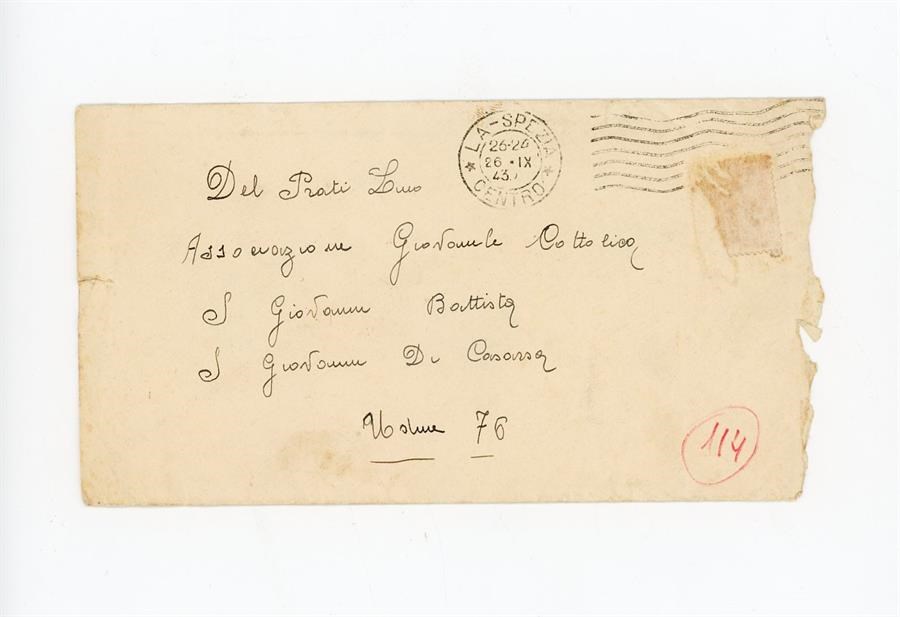 LA-SPEZIA
26-24
26 · IX
43.
CENTRO
Del Prati Lino
Associazione Giovanile Cattolica
S Giovanni Battista
S Giovanni Di Casarsa
Udine 76
114